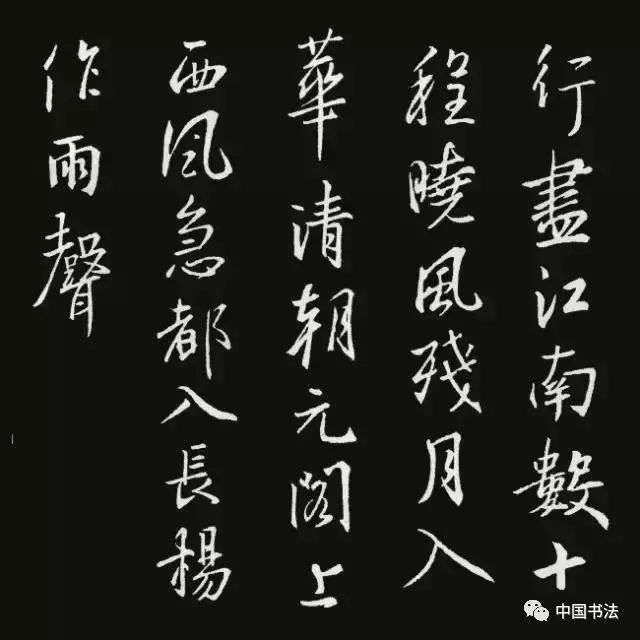 行盡江南數十
程曉風殘月入
華清朝元閣上
西风急都入長楊
作雨聲
中国书法